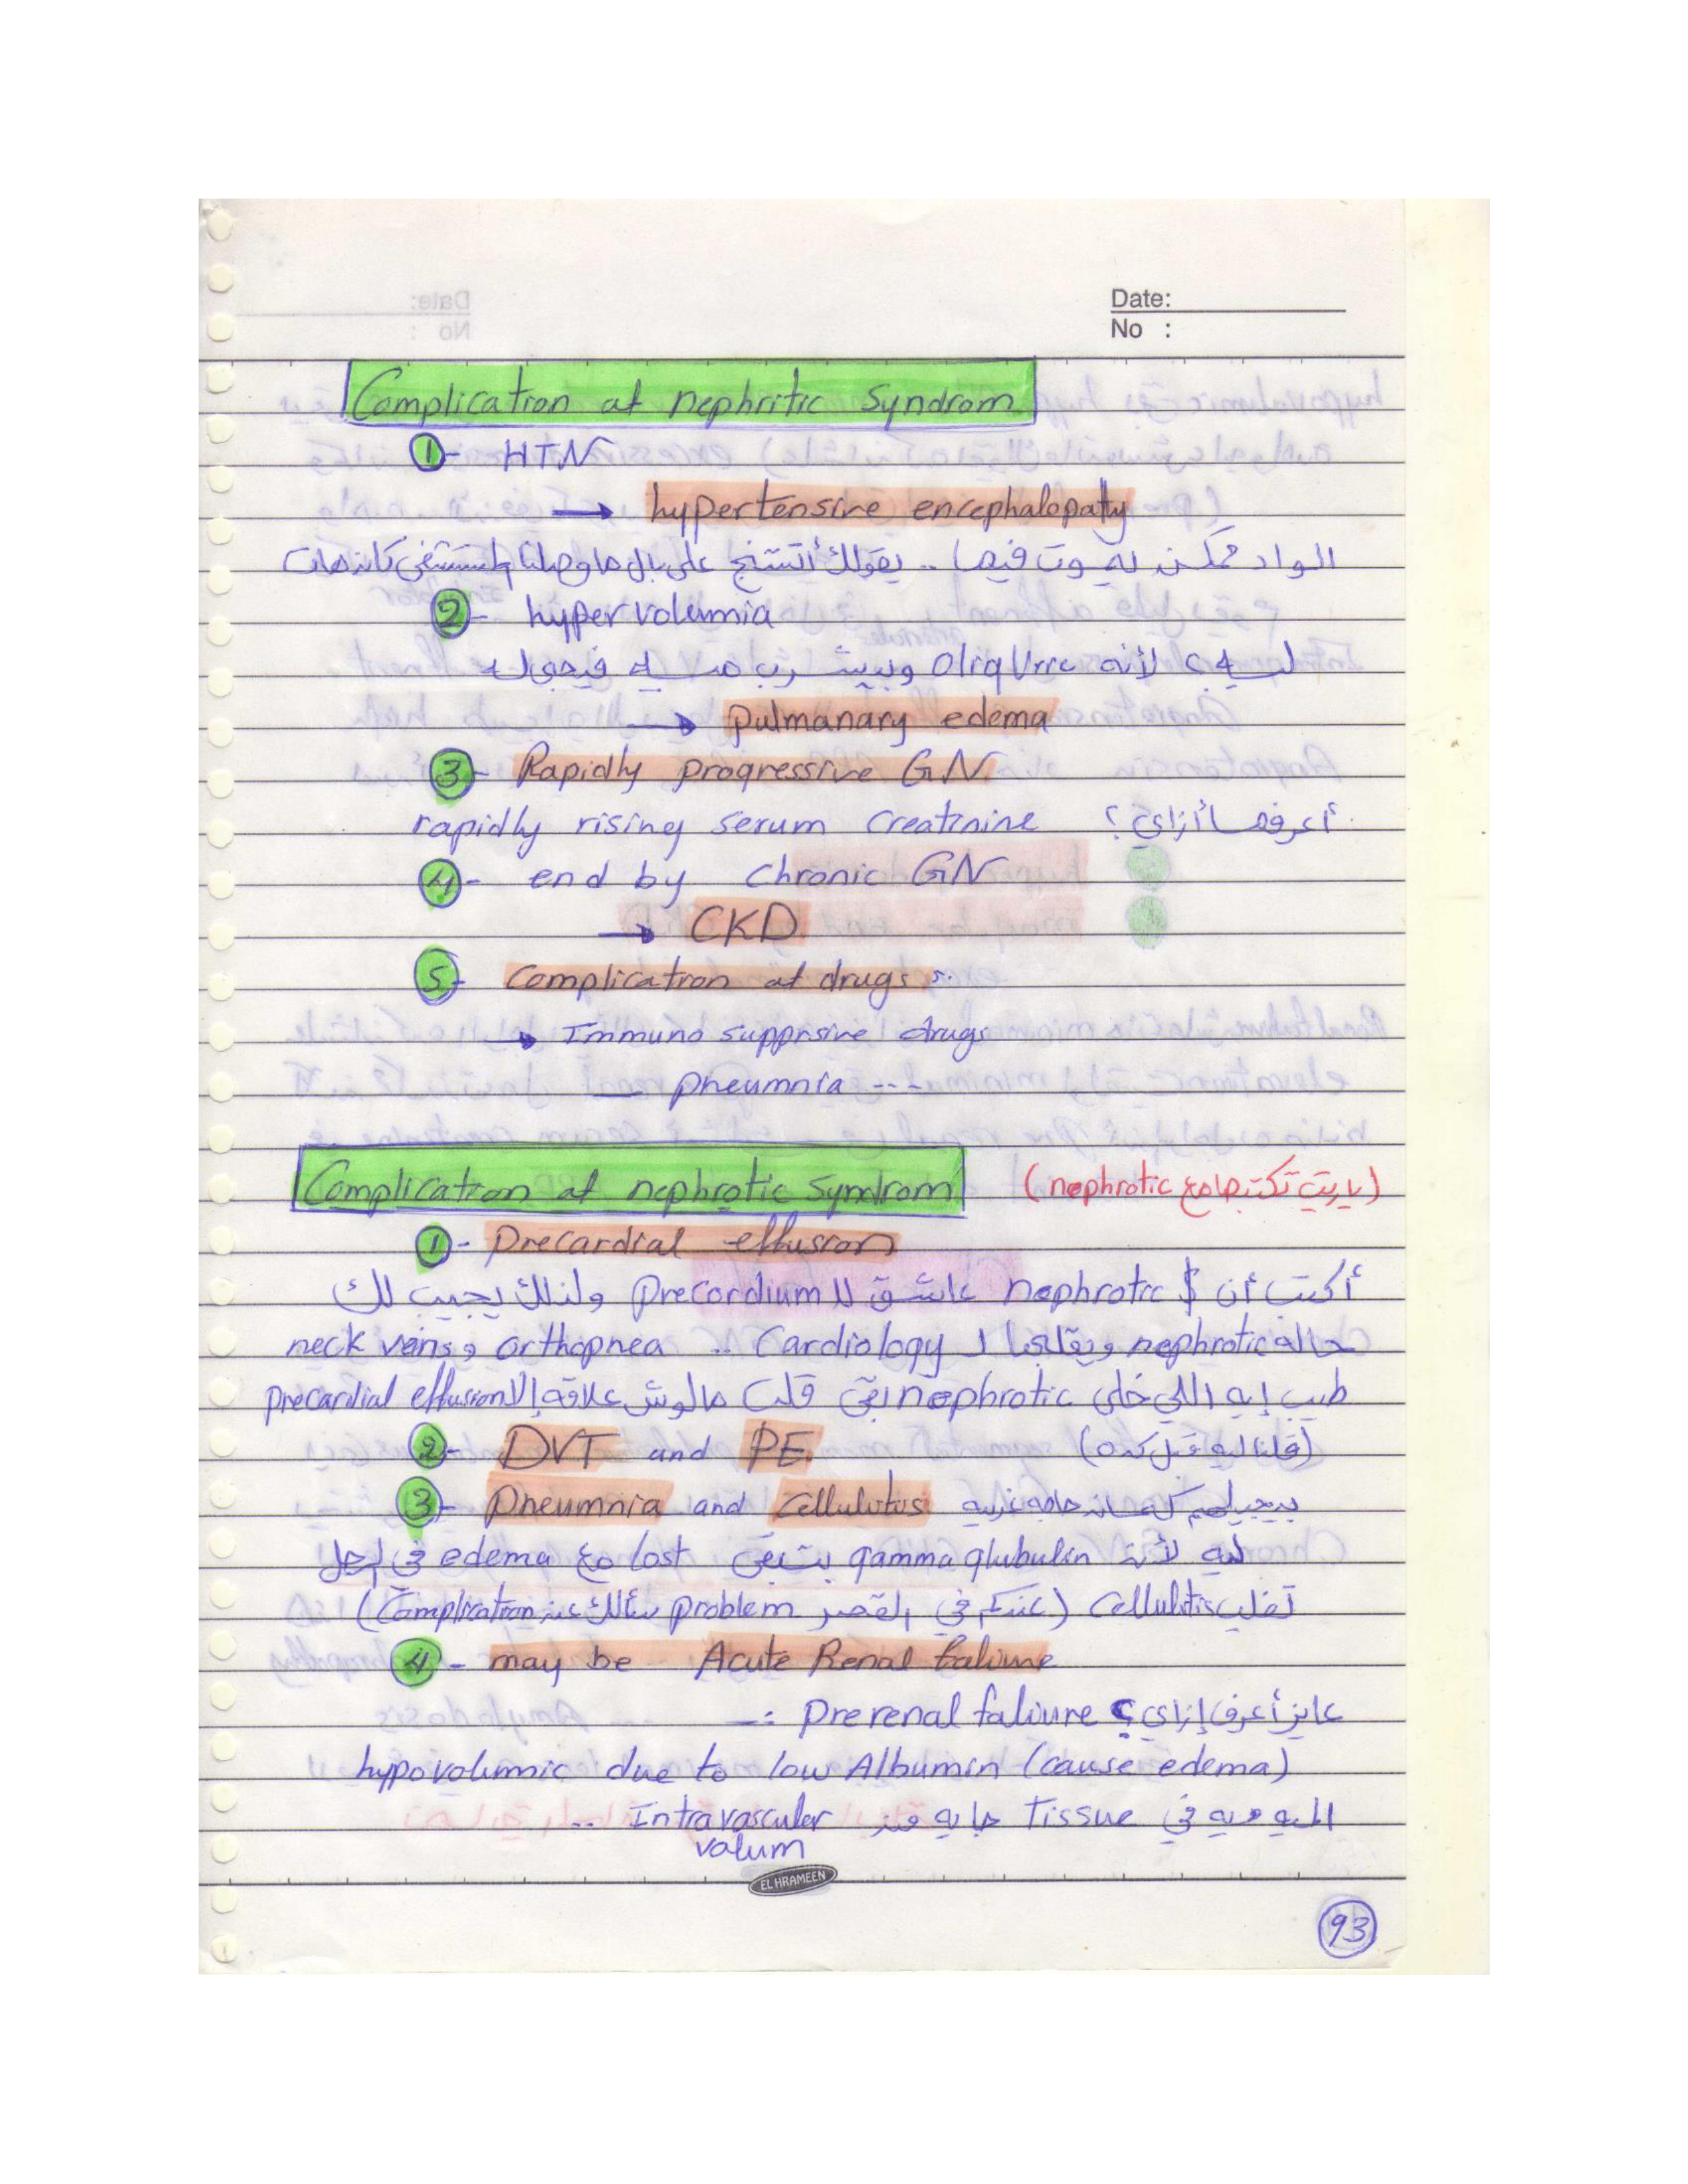 Date:
No :
Complication of nephritic Syndrom
1- HTN
→ hypertensive encephalopaty
الواد ممكن يموت فيها .. يقولك أتشنج على بال ما وصلنا المستشفى كان مات
2- hypervolumia
ليه ؟ لأنه oligUric وبيشرب ميه فيجى له
→ pulmanary edema
3- Rapidly progressive GN
أعرفها أزاي ؟ rapidly rising serum creatinine
4- end by chronic GN
→ CKD
5- Complication of drugs :.
→ Immuno supprsive drugs
— pneumnia ---
Complication of nephrotic Syndrom (ياريت تكتبها مع nephrotic)
1- precardial effusion
أكتب أن nephrotic $ عاشق لل precordium ولذلك يجيب لك
حاله nephrotic ويقلبها لـ Cardiology .. orthopnea و neck veins
طيب إيه اللي خلى nephrotic بقى قلب مالوش علاقه إلا precardial effusion
2- DVT and PE (قلنا ليه قبل كده)
3- pneumnia and cellulitus بيجيلهم كمان حاجه غريبه
ليه لأنه gamma globulin بتبقى lost مع edema في رجل
تقلب cellulitis (عندكم في القصر problem يسألك عن Complication)
4- may be Acute Renal faliure
عايز أعرف إزاي ؟ prerenal faliure :-
hypovolumic due to low Albumin (cause edema)
الميه ديه في Tissue جايه من Intravascular ..
valum
EL HRAMEEN
93